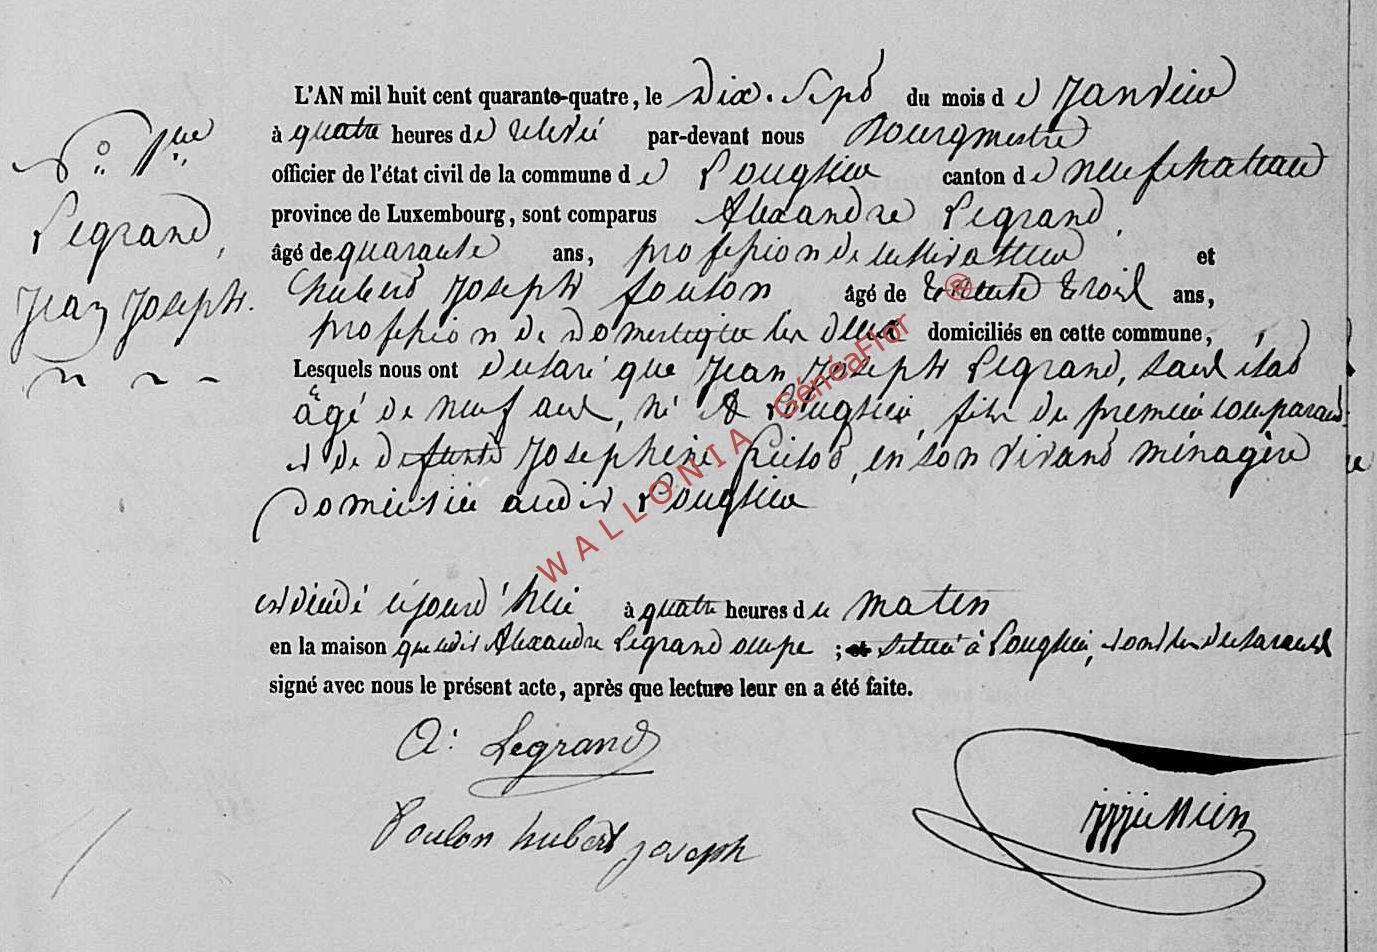 N.° 1er
Legrand,
Jean Joseph.
L'AN mil huit cent quarante-quatre, le dix-sept du mois de Janvier
à quatre heures de relevée par-devant nous Bourgmestre
officier de l'état civil de la commune de Longlier canton de neufchateau
province de Luxembourg, sont comparus Alexandre Legrand,
âgé de quarante ans, profession de cultivateur et
hubert Joseph foulon âgé de trente trois ans,
profession de domestique les deux domiciliés en cette commune,
Lesquels nous ont declaré que Jean Joseph Legrand, sans état
âgé de neuf ans, né à Longlier, fils du premier comparant
et de defunte Josephine en son vivant ménagère
domiciliée audit Longlier
est décédé cejourd'hui à quatre heures du matin
en la maison que ledit Alexandre Legrand occupe ; située à Longlier, et ont les declarants
signé avec nous le présent acte, après que lecture leur en a été faite.
A. Legrand
Foulon hubert joseph
WALLONIA GénéaFlor